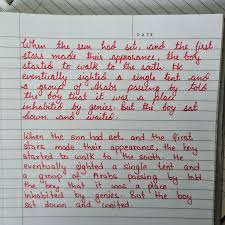 DATE
When the sun had set, and the first
stars made their appearance, the boy
started to walk to the south. He
eventually sighted a single tent and
a group of Arabs passing by told
the boy that it was a place
inhabited by genies. But the boy sat
down and waited.
When the sun had set, and the first
stars made their appearance, the boy
started to walk to the south. He
eventually sighted a single tent and
a group of Arabs passing by told
the boy that it was a place
inhabited by genies. But the boy
sat down and waited.